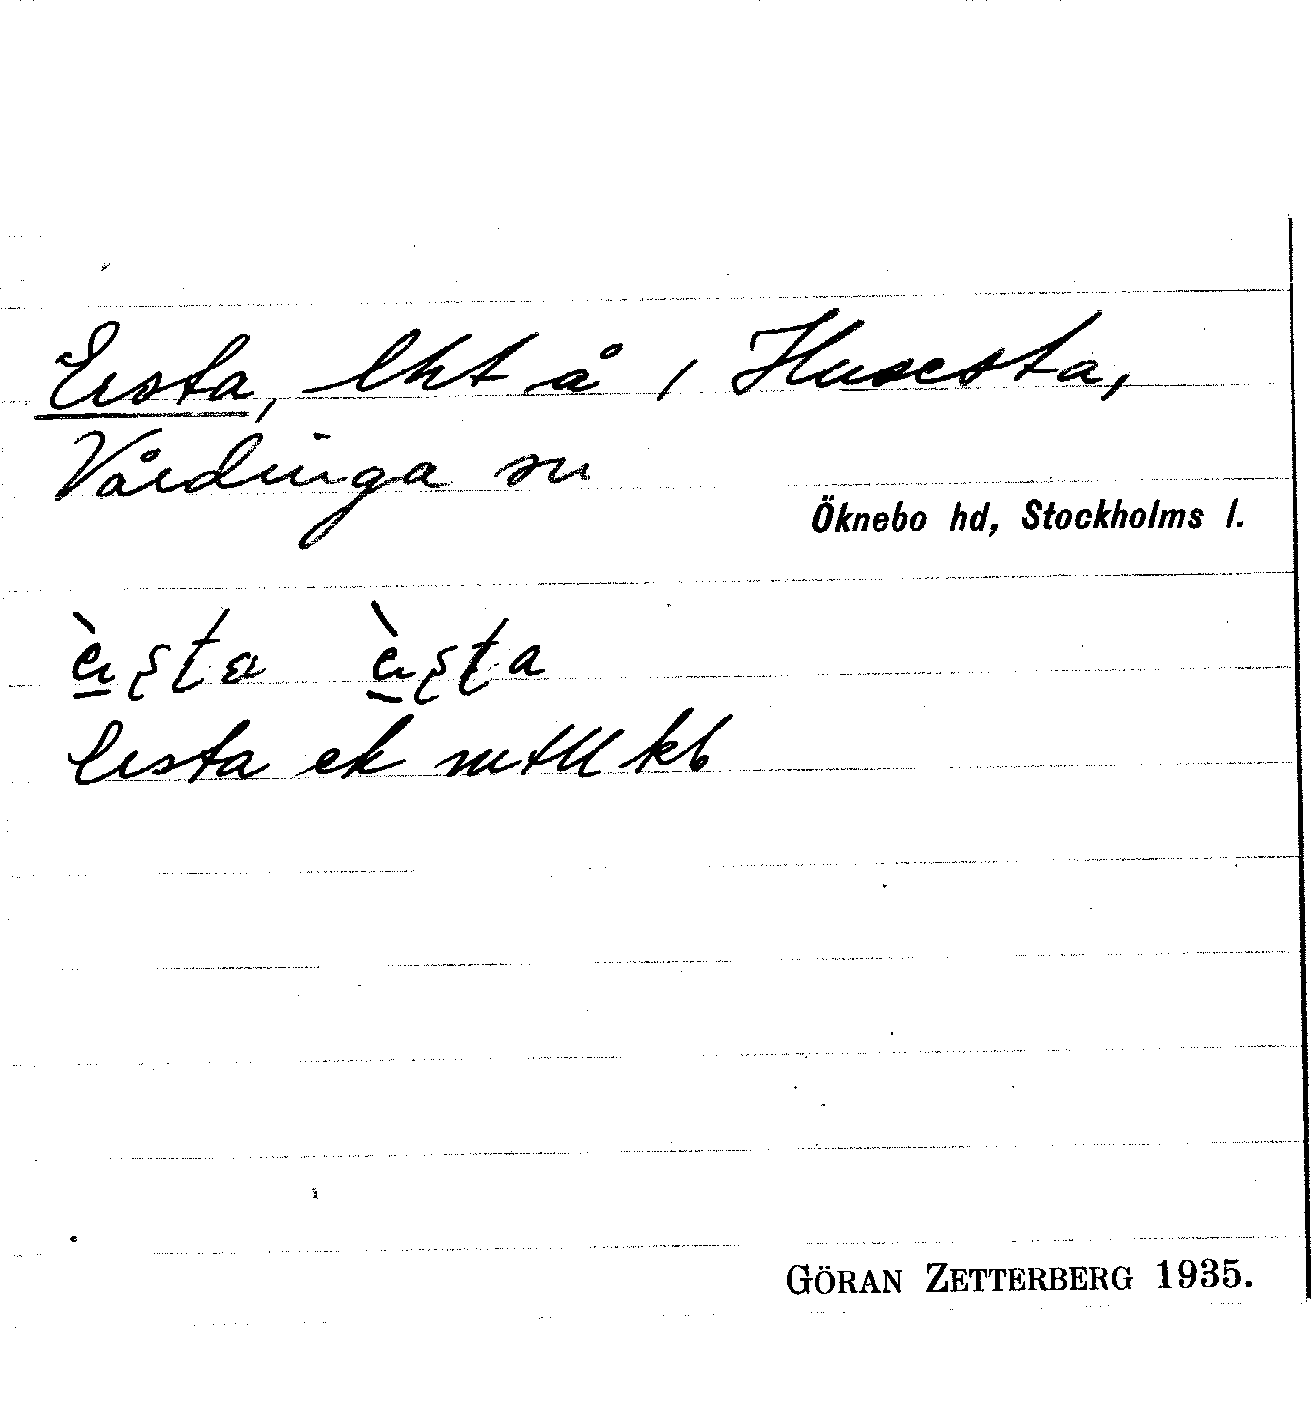 Ersta, lht å i Husesta,
Vårdinga sn
Öknebo hd, Stockholms l.
Ersta ek mtll kb
GÖRAN ZETTERBERG 1935.